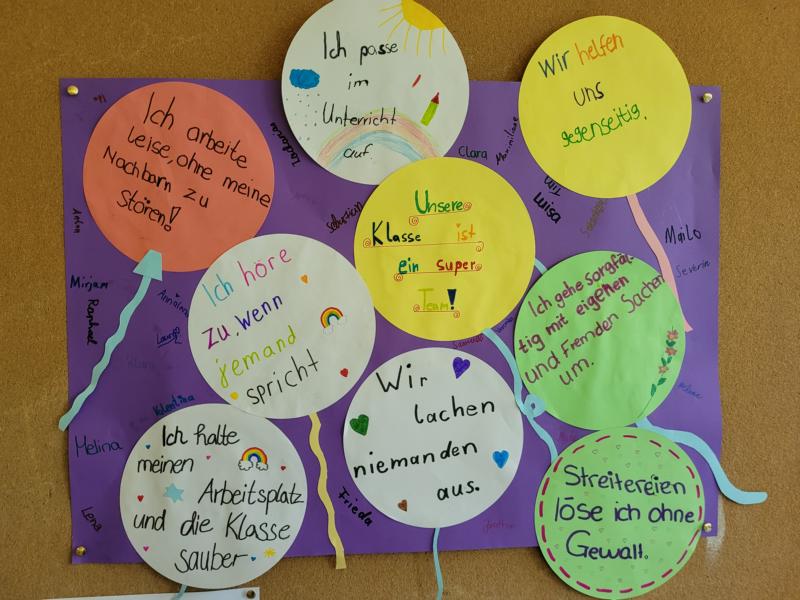 Ich passe
im
Unterricht
auf.
Wir helfen
uns
gegenseitig.
Ich arbeite
leise, ohne meine
Nachbarn zu
stören!
Unsere
Klasse ist
ein super
Team!
Ich höre
zu, wenn
jemand
spricht
Ich gehe sorgfäl-
tig mit eigenen
und Fremden Sachen
um.
Wir
lachen
niemanden
aus.
Ich halte
meinen
Arbeitsplatz
und die Klasse
sauber
Streitereien
löse ich ohne
Gewalt.
Clara
Maximiliane
Tim
Luisa
Mailo
Severin
Anton
Mirjam
Raphael
Klara
Valentina
Melina
Lena
Frieda
Sebastian
Jonathan